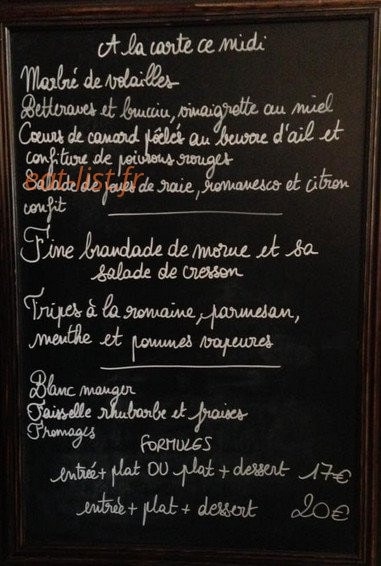 A la carte ce midi
Marbré de volailles
Betteraves et brucciu, vinaigrette au miel
Coeurs de canard poêlés au beurre d'ail et
confiture de poivrons rouges
Salade de joues de raie, romanesco et citron
confit
eat-list.fr
Fine brandade de morue et sa
salade de cresson
Tripes à la romaine, parmesan,
menthe et pommes vapeures
Blanc manger
Faisselle rhubarbe et fraises
Fromages
FORMULES
entrée + plat OU plat + dessert 17€
entrée + plat + dessert 20€